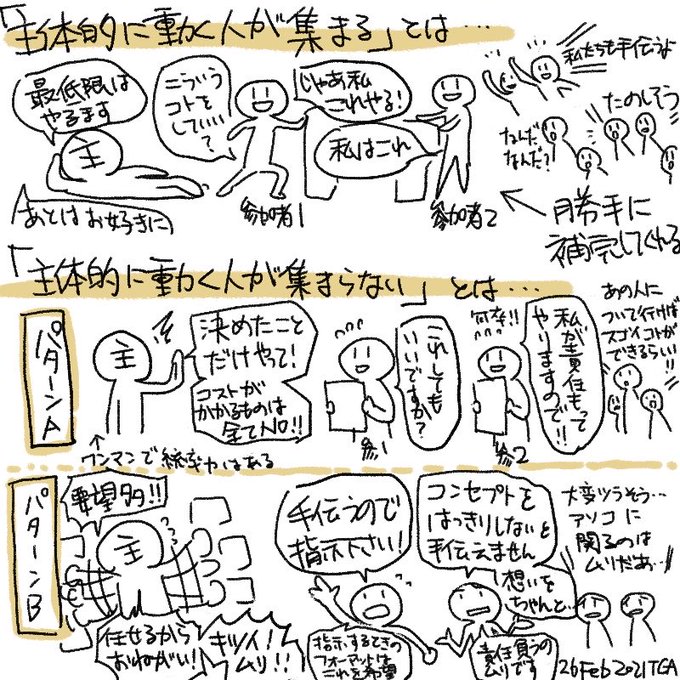 「主体的に動く人が集まる」とは…
最低限は
やるます
主
あとはお好きに
こういう
コトを
していい
?
参加者1
じゃあ私
これやる!
私はこれ
参加者2
私たちも手伝うよ
たのしそう
なんだ
なんだ?
勝手に
補完してくれる
「主体的に動く人が集まらない」とは…
パターンA
主
決めたこと
だけやって!
コストが
かかるものは
全てNO!!
ワンマンで統率力はある
これしても
いいですか?
参1
何卒!!
私が責任もって
やりますので!!
参2
あの人に
ついて行けば
スゴイコトが
できるらしい!!
パターンB
要望多!!
主
任せるから
おねがい!
キツイ!
ムリ!!
手伝うので
指示下さい!
指示するときの
フォーマットは
これを希望
コンセプトを
はっきりしないと
手伝えません
想いを
ちゃんと…
責任負うの
ムリです
大変ツラそう…
アソコに
関るのは
ムリだぁ…
26 Feb 2021 TGA